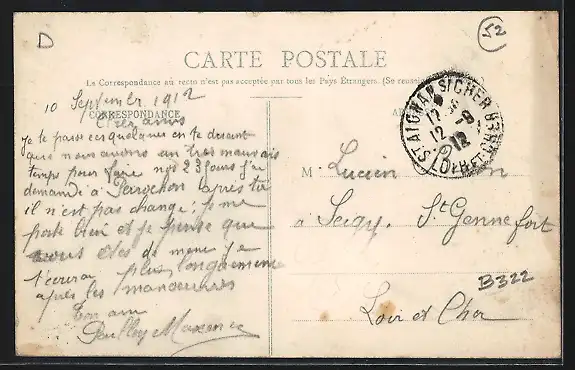 D
52
CARTE POSTALE
La Correspondance au recto n'est pas acceptée par tous les Pays Étrangers. (Se
10 Septembre 1912
CORRESPONDANCE
Cher amis
Je te passe ces quelques en te disant
que nous avons un tres mauvais
temps pour faire nos 23 jours j'ai
demandé à Perrochon après toi
il n'est pas changé; je me
porte bien et je pense que
vous etes de meme je
t'écrirai plus longuement
après les manoeuvres
Ton ami
Maxence
ST AIGNAN S/CHER
12
12 - 9
12
LOIR-ET-CHER
M. Lucien
à Seigy. St Genne fort
B322
Loir et Cher